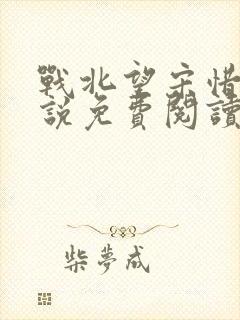 戰北望宋惜
說免費閱讀
柴夢成